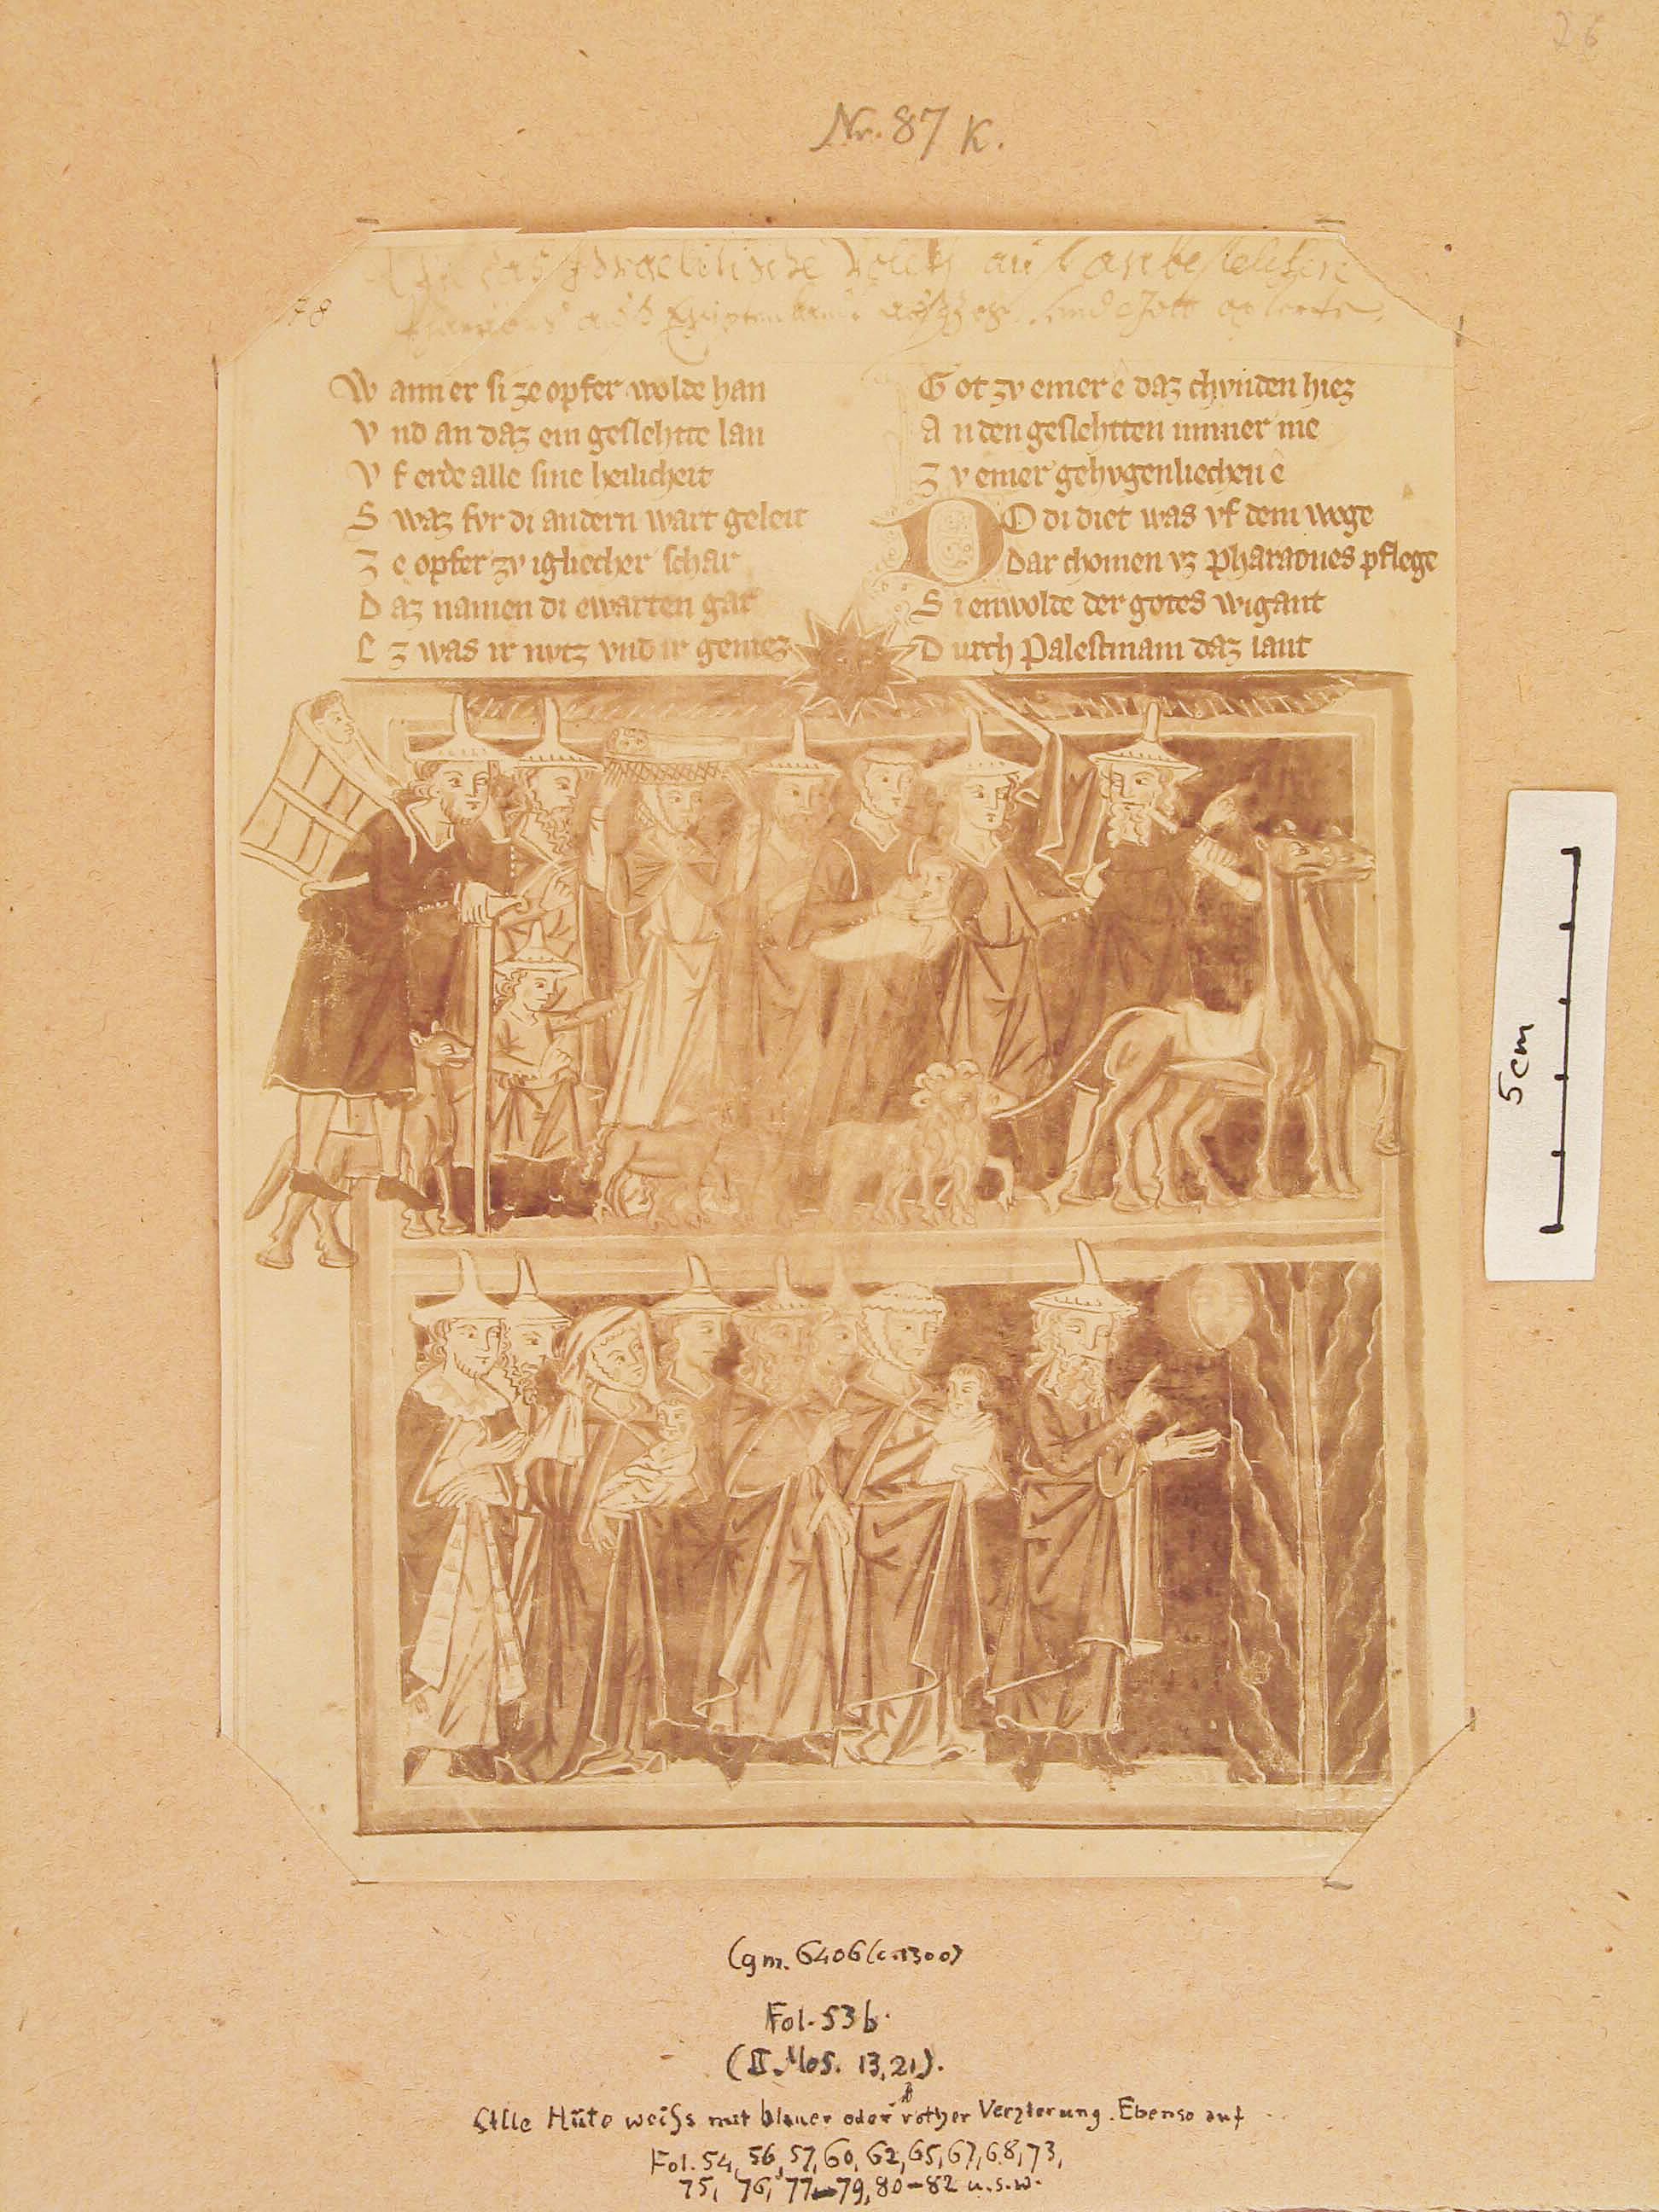 26
Nr. 87 K.
das Israelitische Volck auf
78
W ann er si ze opfer wolde han
V nd an daz ein geslehtte lan
V f erde alle sine heilicheit
S waz fvr di andern wart geleit
Z e opfer zv igliecher schar
D az namen di ewarten gar
E z was ir nvtz vnd ir geniez
G ot zv einer e daz chvnden hiez
A n den geslehtten immer me
Z v einer gehvgenliechen e
D O di diet was vf dem wege
Dar chomen vz Pharaones pflege
S i enwolde der gotes wigant
D urch Palestinam daz lant
5 cm
(gm. 6406 (c. 1300)
Fol. 53 b.
(II Mos. 13, 21).
Alle Hüte weiss mit blauer oder rother Verzierung. Ebenso auf
Fol. 54, 56, 57, 60, 62, 65, 67, 68, 73,
75, 76, 77-79, 80-82 u.s.w.